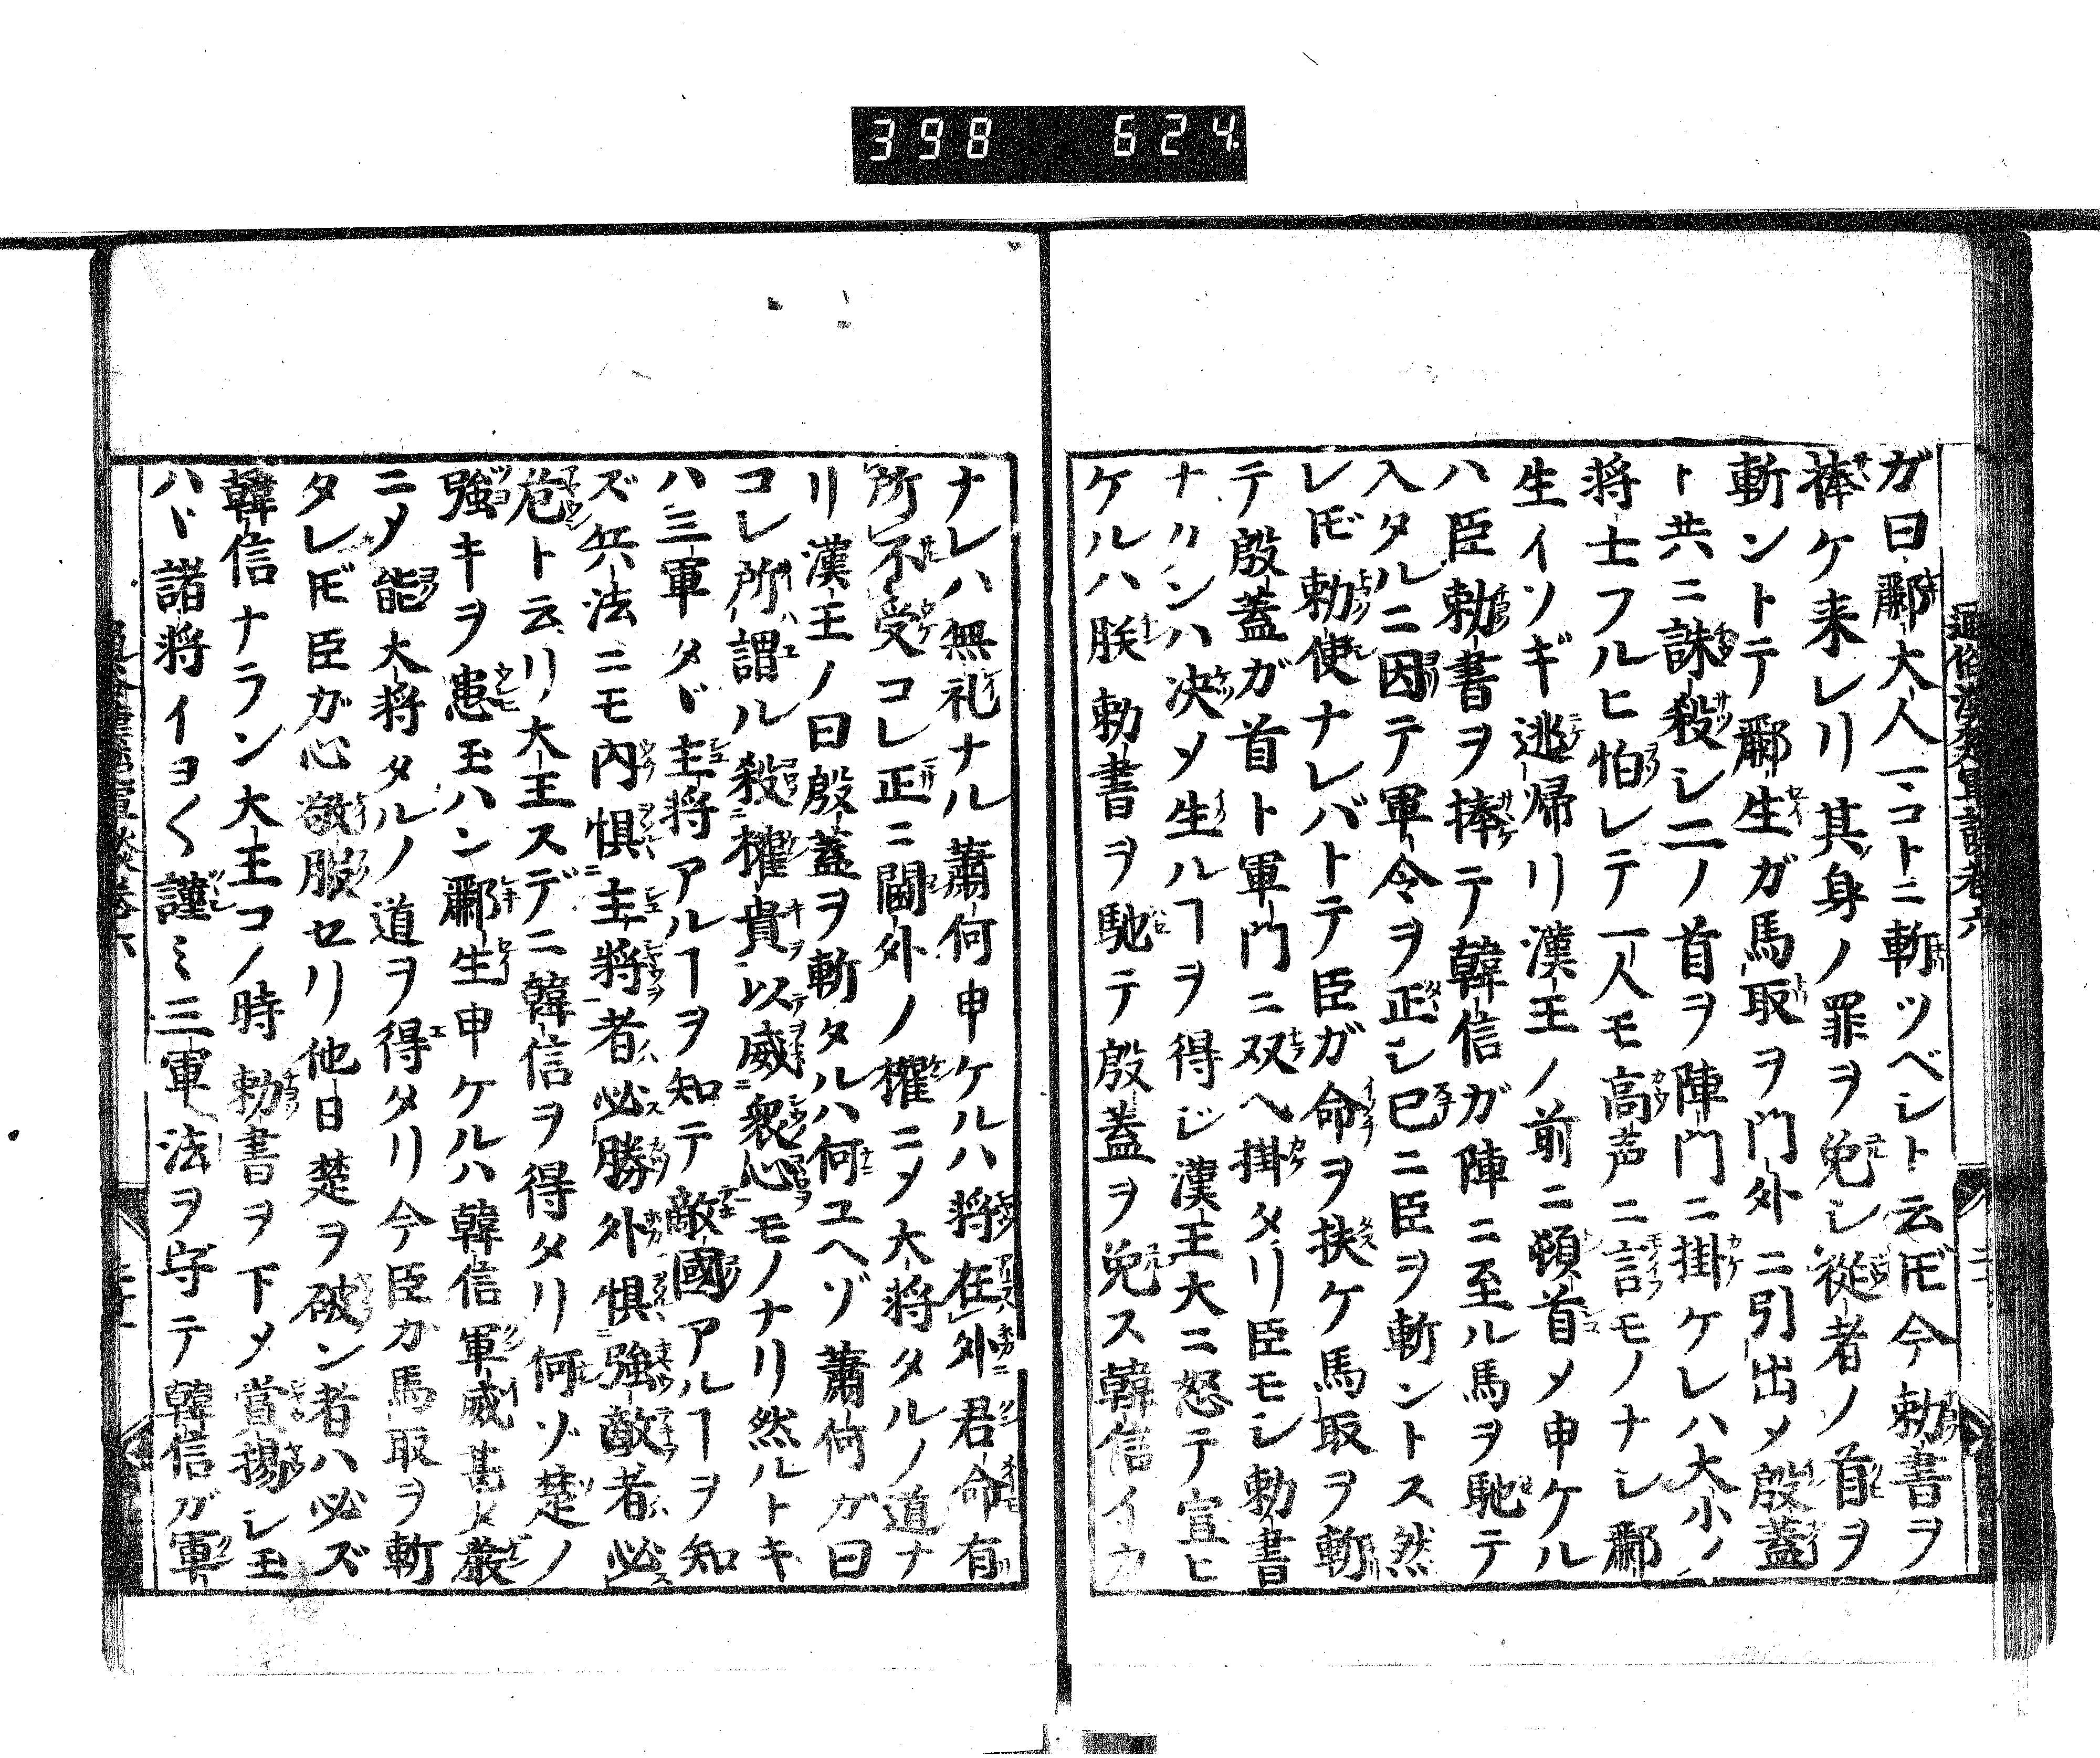 398 624
ガ曰酈大人マコトニ斬ツベシト云𪜈今勅書ヲ
捧ケ来レリ其身ノ罪ヲ免シ従者ノ首ヲ
斬ントテ酈生ガ馬取ヲ門外ニ引出メ殷蓋
ト共ニ誅殺シ二ノ首ヲ陣門ニ掛ケレハ大小ノ
将士フルヒ怕レテ一人モ高声ニ言モノナシ酈
生イソギ逃帰リ漢王ノ前ニ頓首メ申ケル
ハ臣勅書ヲ捧テ韓信ガ陣ニ至ル馬ヲ馳テ
入タルニ因テ軍令ヲ正シ已ニ臣ヲ斬ントス然
レ𪜈勅使ナレバトテ臣ガ命ヲ扶ケ馬取ヲ斬
テ殷蓋ガ首ト軍門ニ双ヘ掛タリ臣モシ勅書
ナクンハ决メ生ルヿヲ得ジ漢王大ニ怒テ宣ヒ
ケルハ朕勅書ヲ馳テ殷蓋ヲ免ス韓信イカ
ナレハ無礼ナル蕭何申ケルハ将在外君命有
所不受コレ正ニ閫外ノ権ニメ大将タルノ道ナ
リ漢王ノ曰殷蓋ヲ斬タルハ何ユヘゾ蕭何ガ曰
コレ所謂ル殺権貴以威衆心モノナリ然ルトキ
ハ三軍タヾ主将アルヿヲ知テ敵國アルヿヲ知
ズ兵法ニモ内惧主将者必勝外惧強敵者必
危ト云リ大王スデニ韓信ヲ得タリ何ゾ楚ノ
強キヲ患玉ハン酈生申ケルハ韓信軍威甚タ厳
ニメ能大将タルノ道ヲ得タリ今臣カ馬取ヲ斬
タレ𪜈臣ガ心敬服セリ他日楚ヲ破ン者ハ必ズ
韓信ナラン大王コノ時勅書ヲ下メ賞揚シ玉
ハヾ諸将イヨ〱謹ミ三軍法ヲ守テ韓信ガ軍